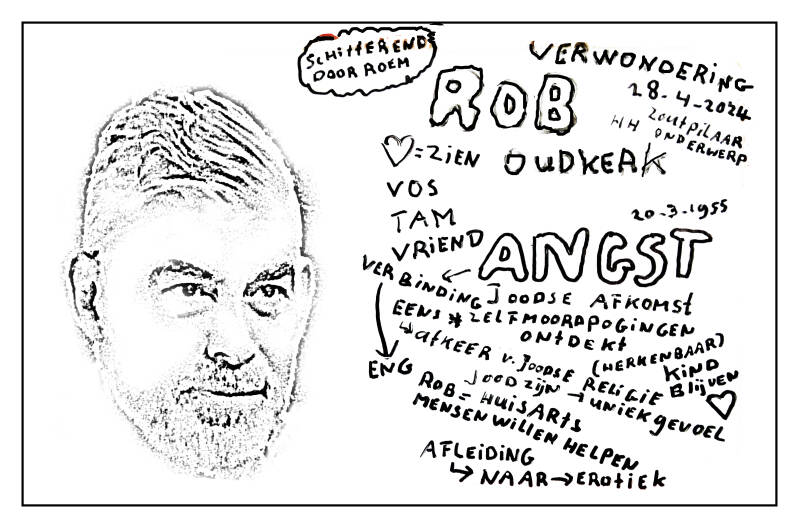 SCHITTEREND
DOOR ROEM
VERWONDERING
28-4-2024
ROB
ZOUTPILAAR
HH ONDERWERP
♡=ZIEN
OUDKERK
VOS
TAM
VRIEND
20-3-1955
ANGST
VERBINDING
JOODSE AFKOMST
EENS * ZELFMOORDPOGINGEN
ONTDEKT
AFKEER V. JOODSE RELIGIE
(HERKENBAAR)
KIND
BLIJVEN
♡
ENG
JOOD ZIJN → UNIEK GEVOEL
ROB = HUISARTS
MENSEN WILLEN HELPEN
AFLEIDING
↳ NAAR → EROTIEK